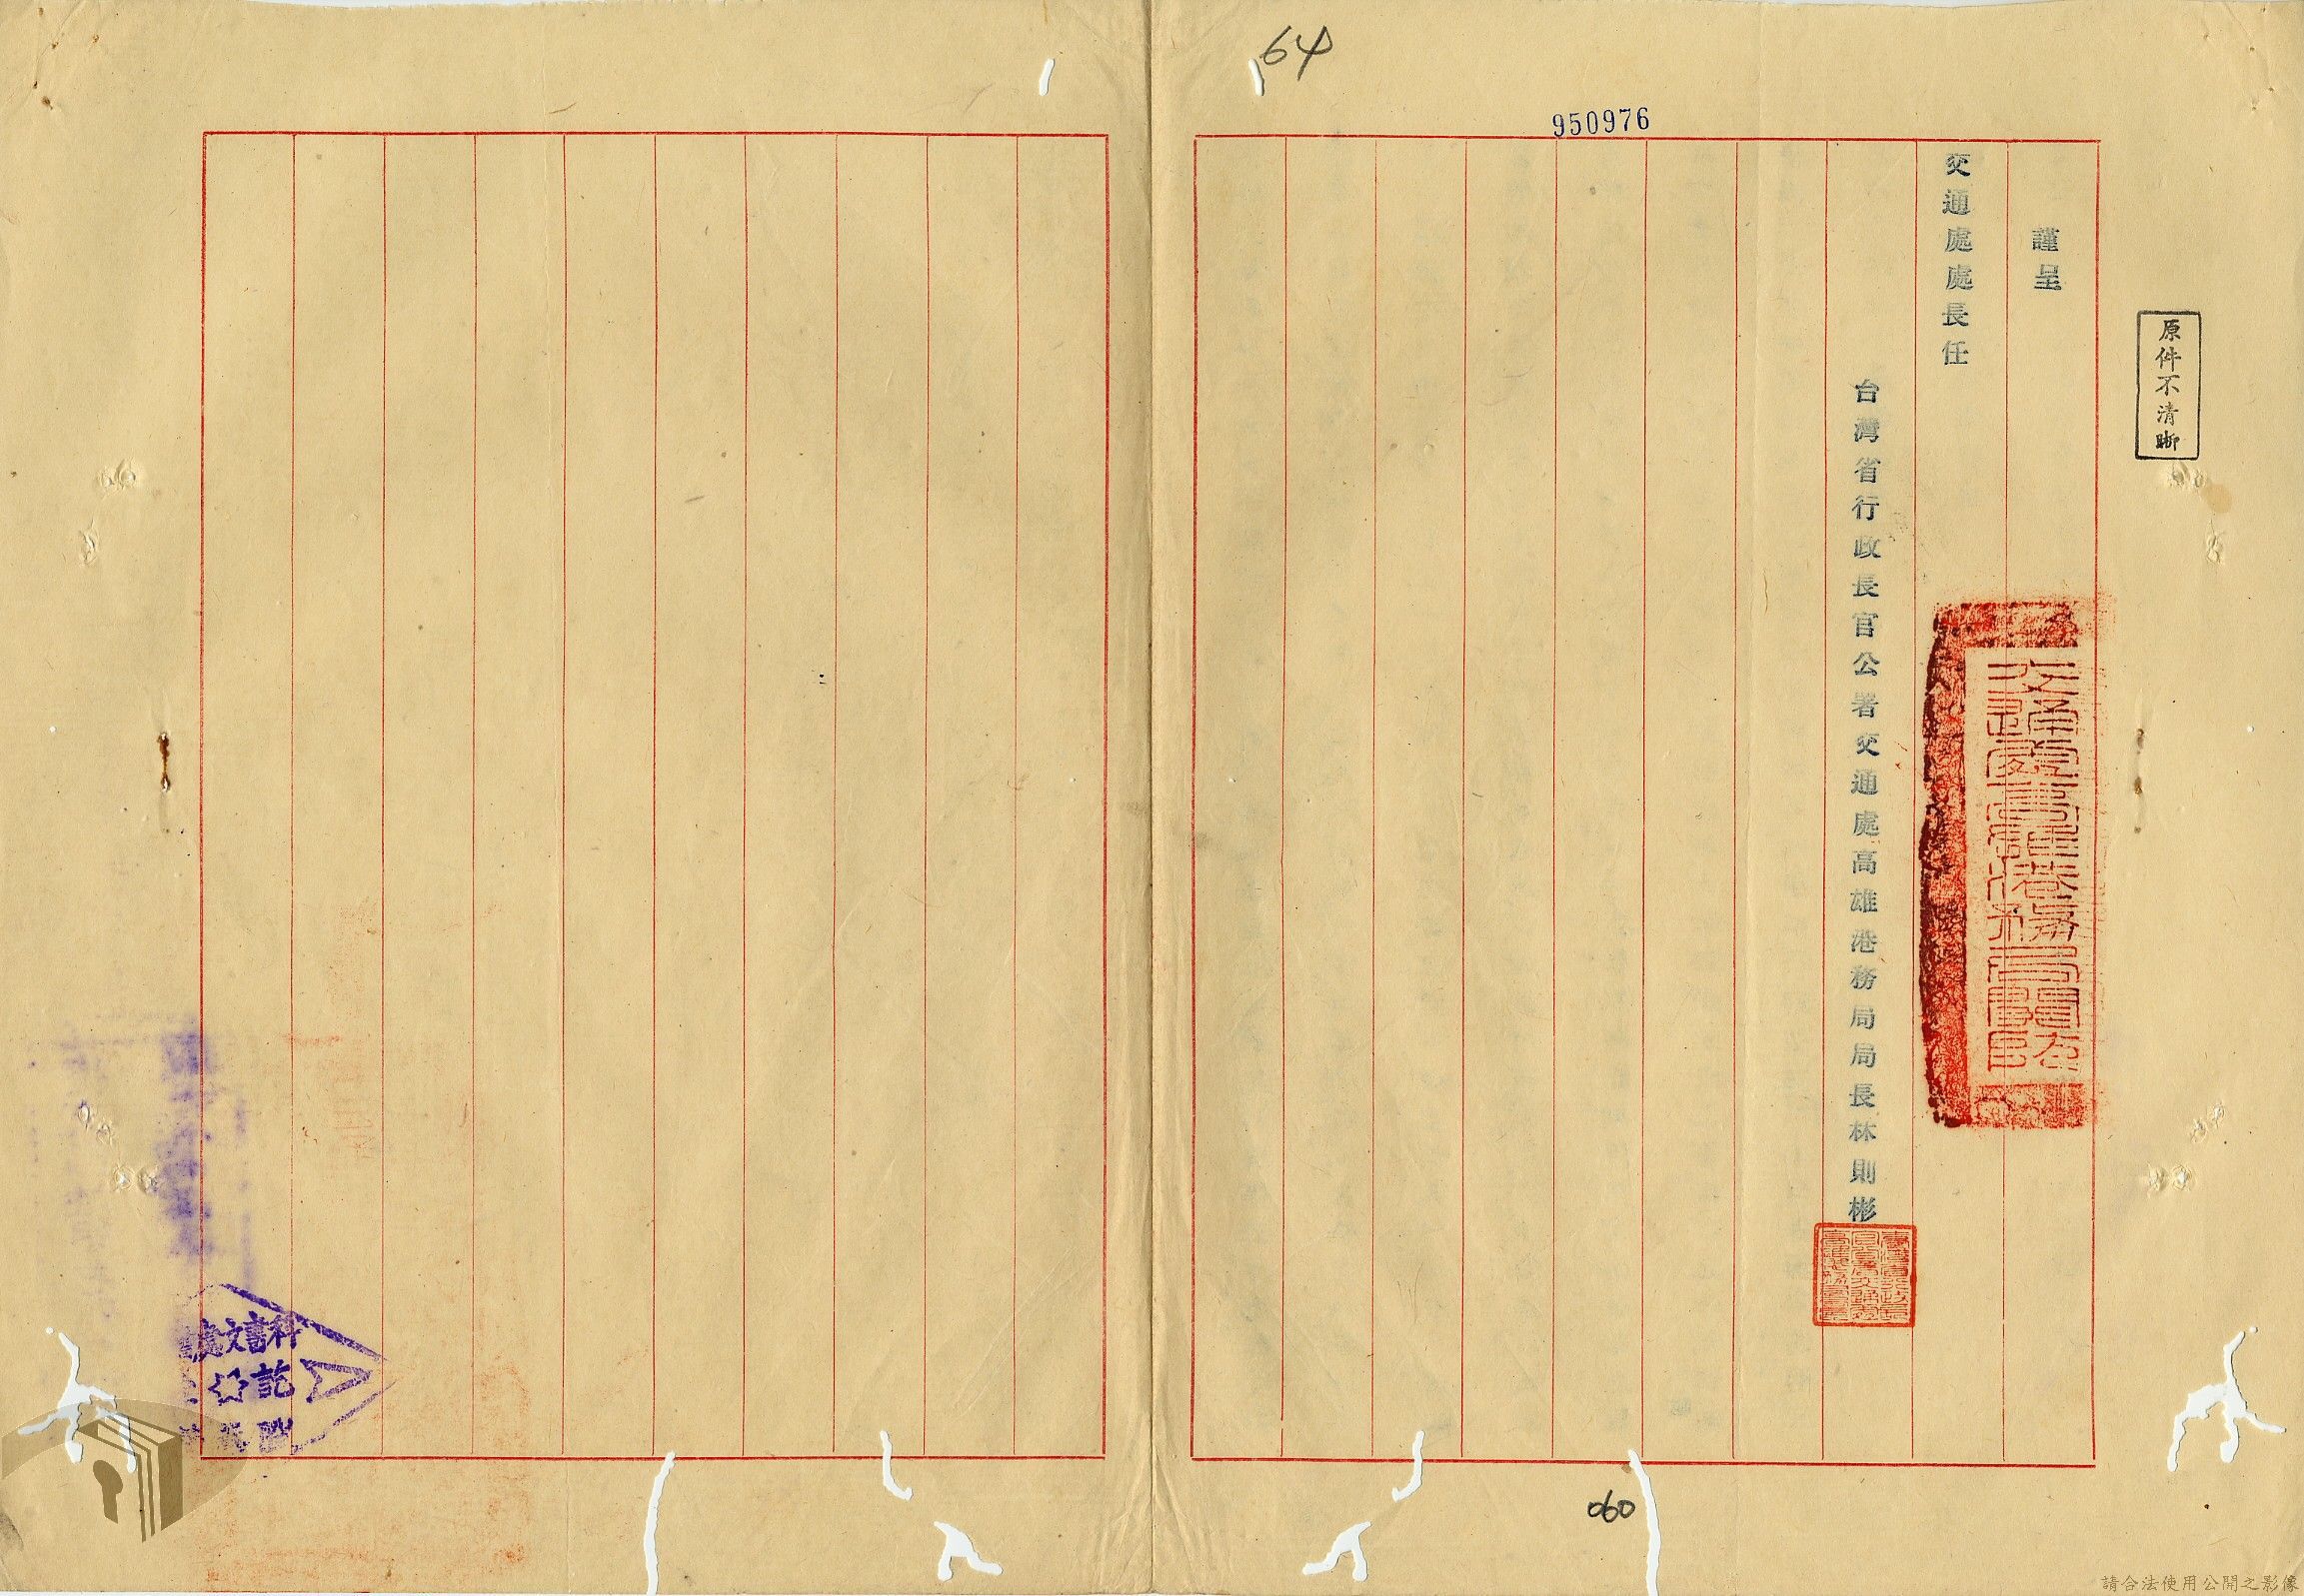 64
950976
原件不清晰
謹呈
交通處處長任
台灣省行政長官公署交通處高雄港務局局長林則彬
交通處高雄港務局關防
科書文處
訖
060
請合法使用公開之影像